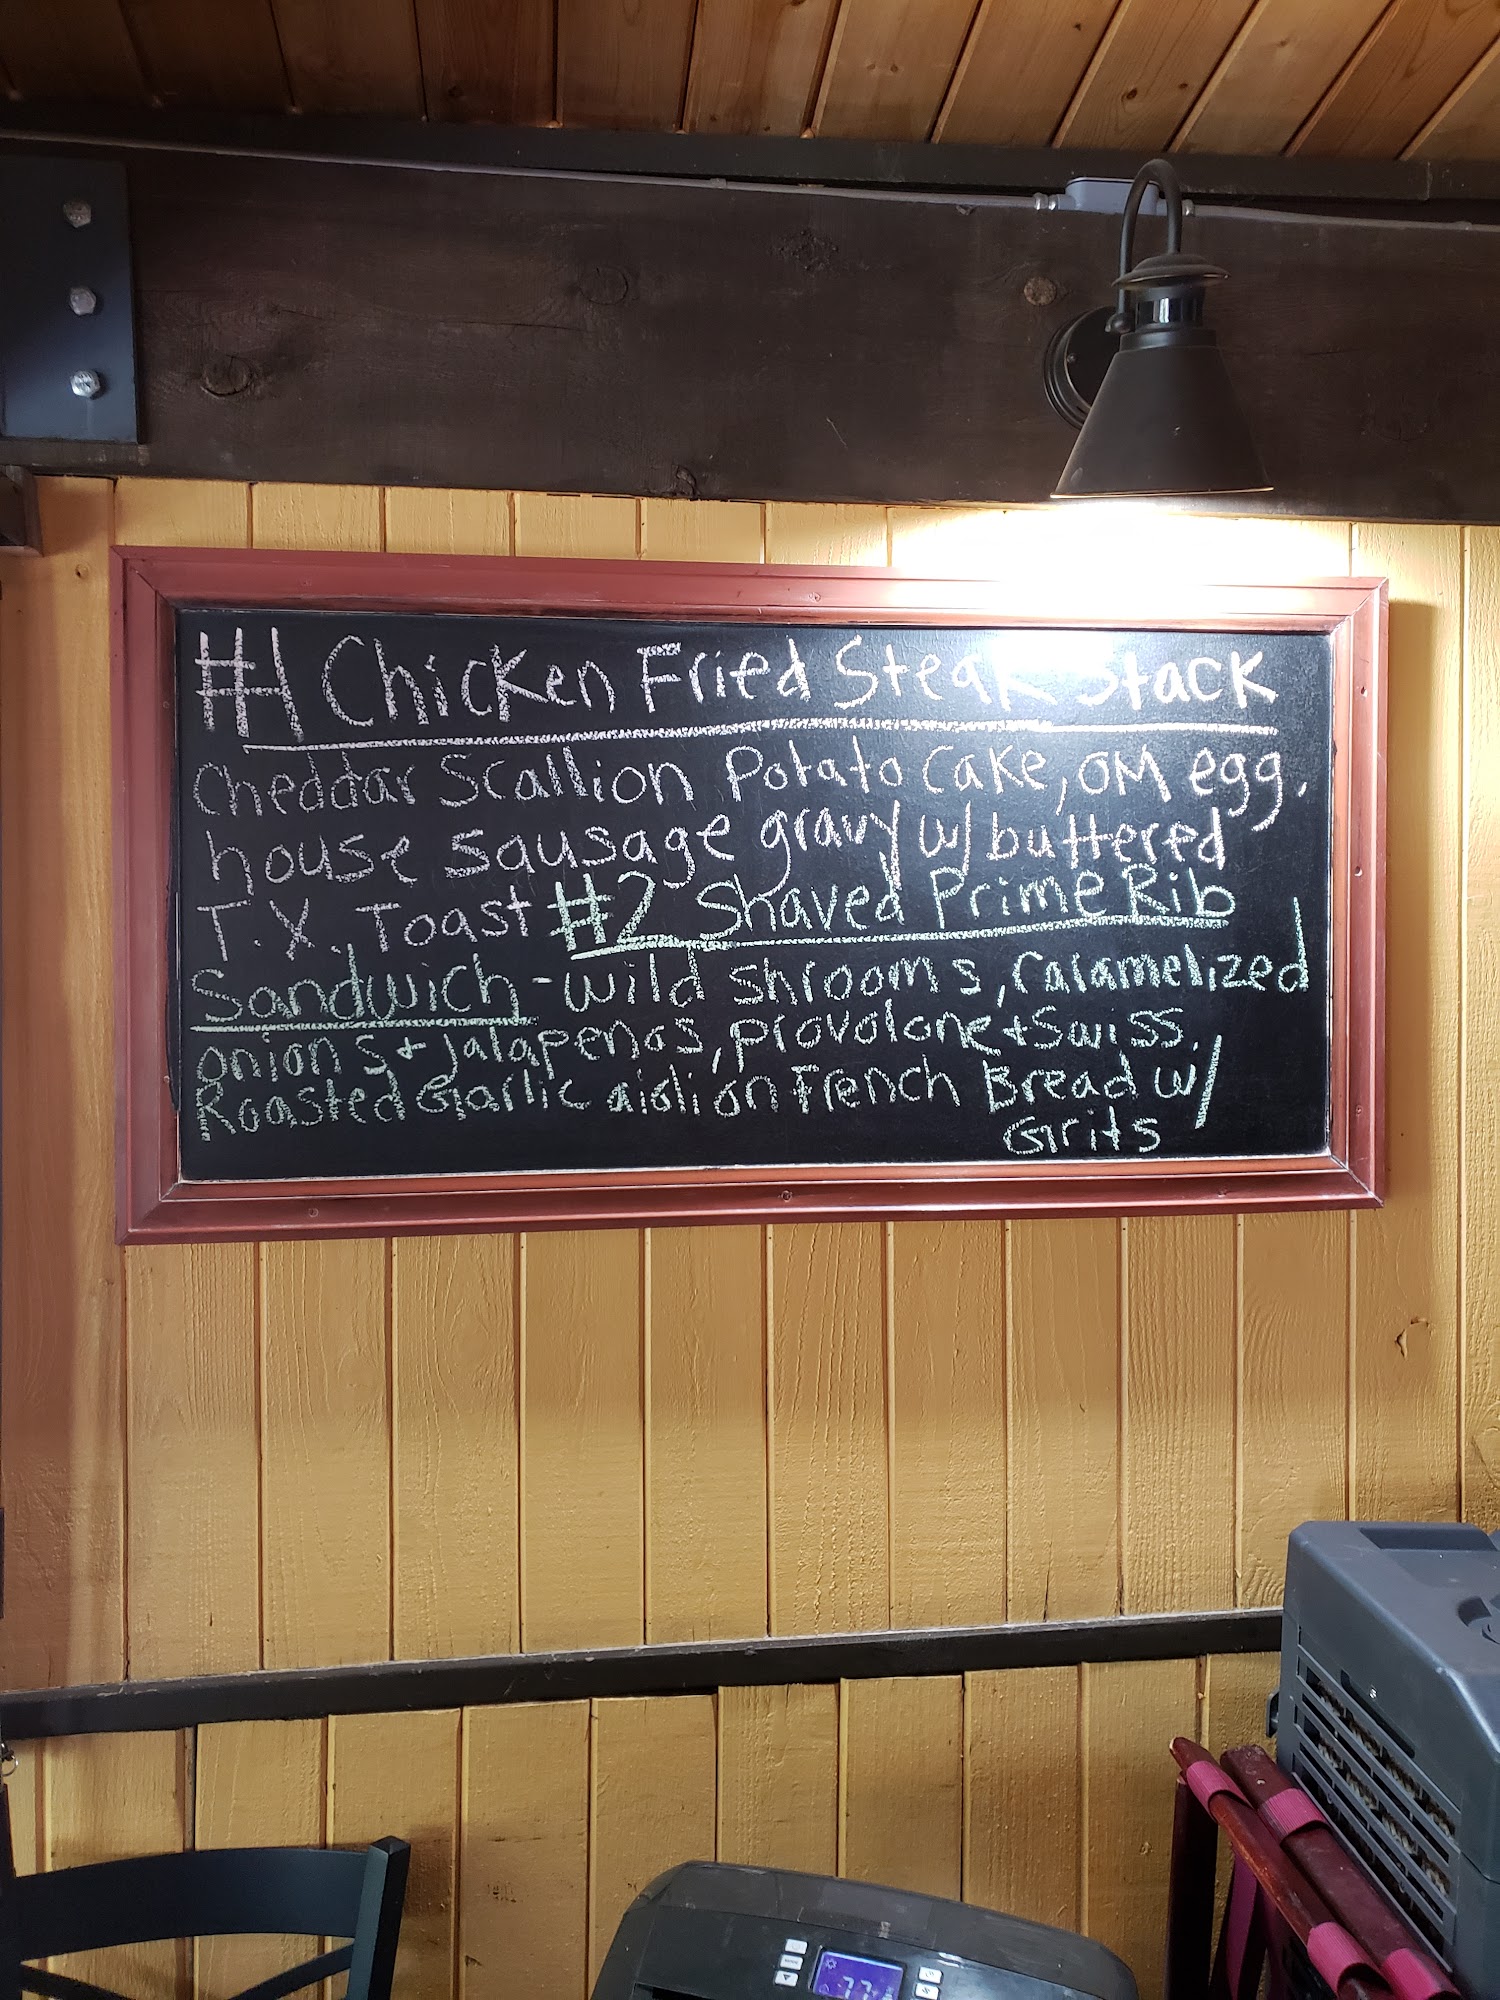 #1 Chicken Fried Steak Stack
Cheddar Scallion Potato Cake, OM egg,
house sausage gravy w/ buttered
T.X. Toast #2 Shaved Prime Rib
Sandwich - wild shrooms, Caramelized
onions + jalapenos, provolone + Swiss,
Roasted Garlic aioli on French Bread w/
Grits
77